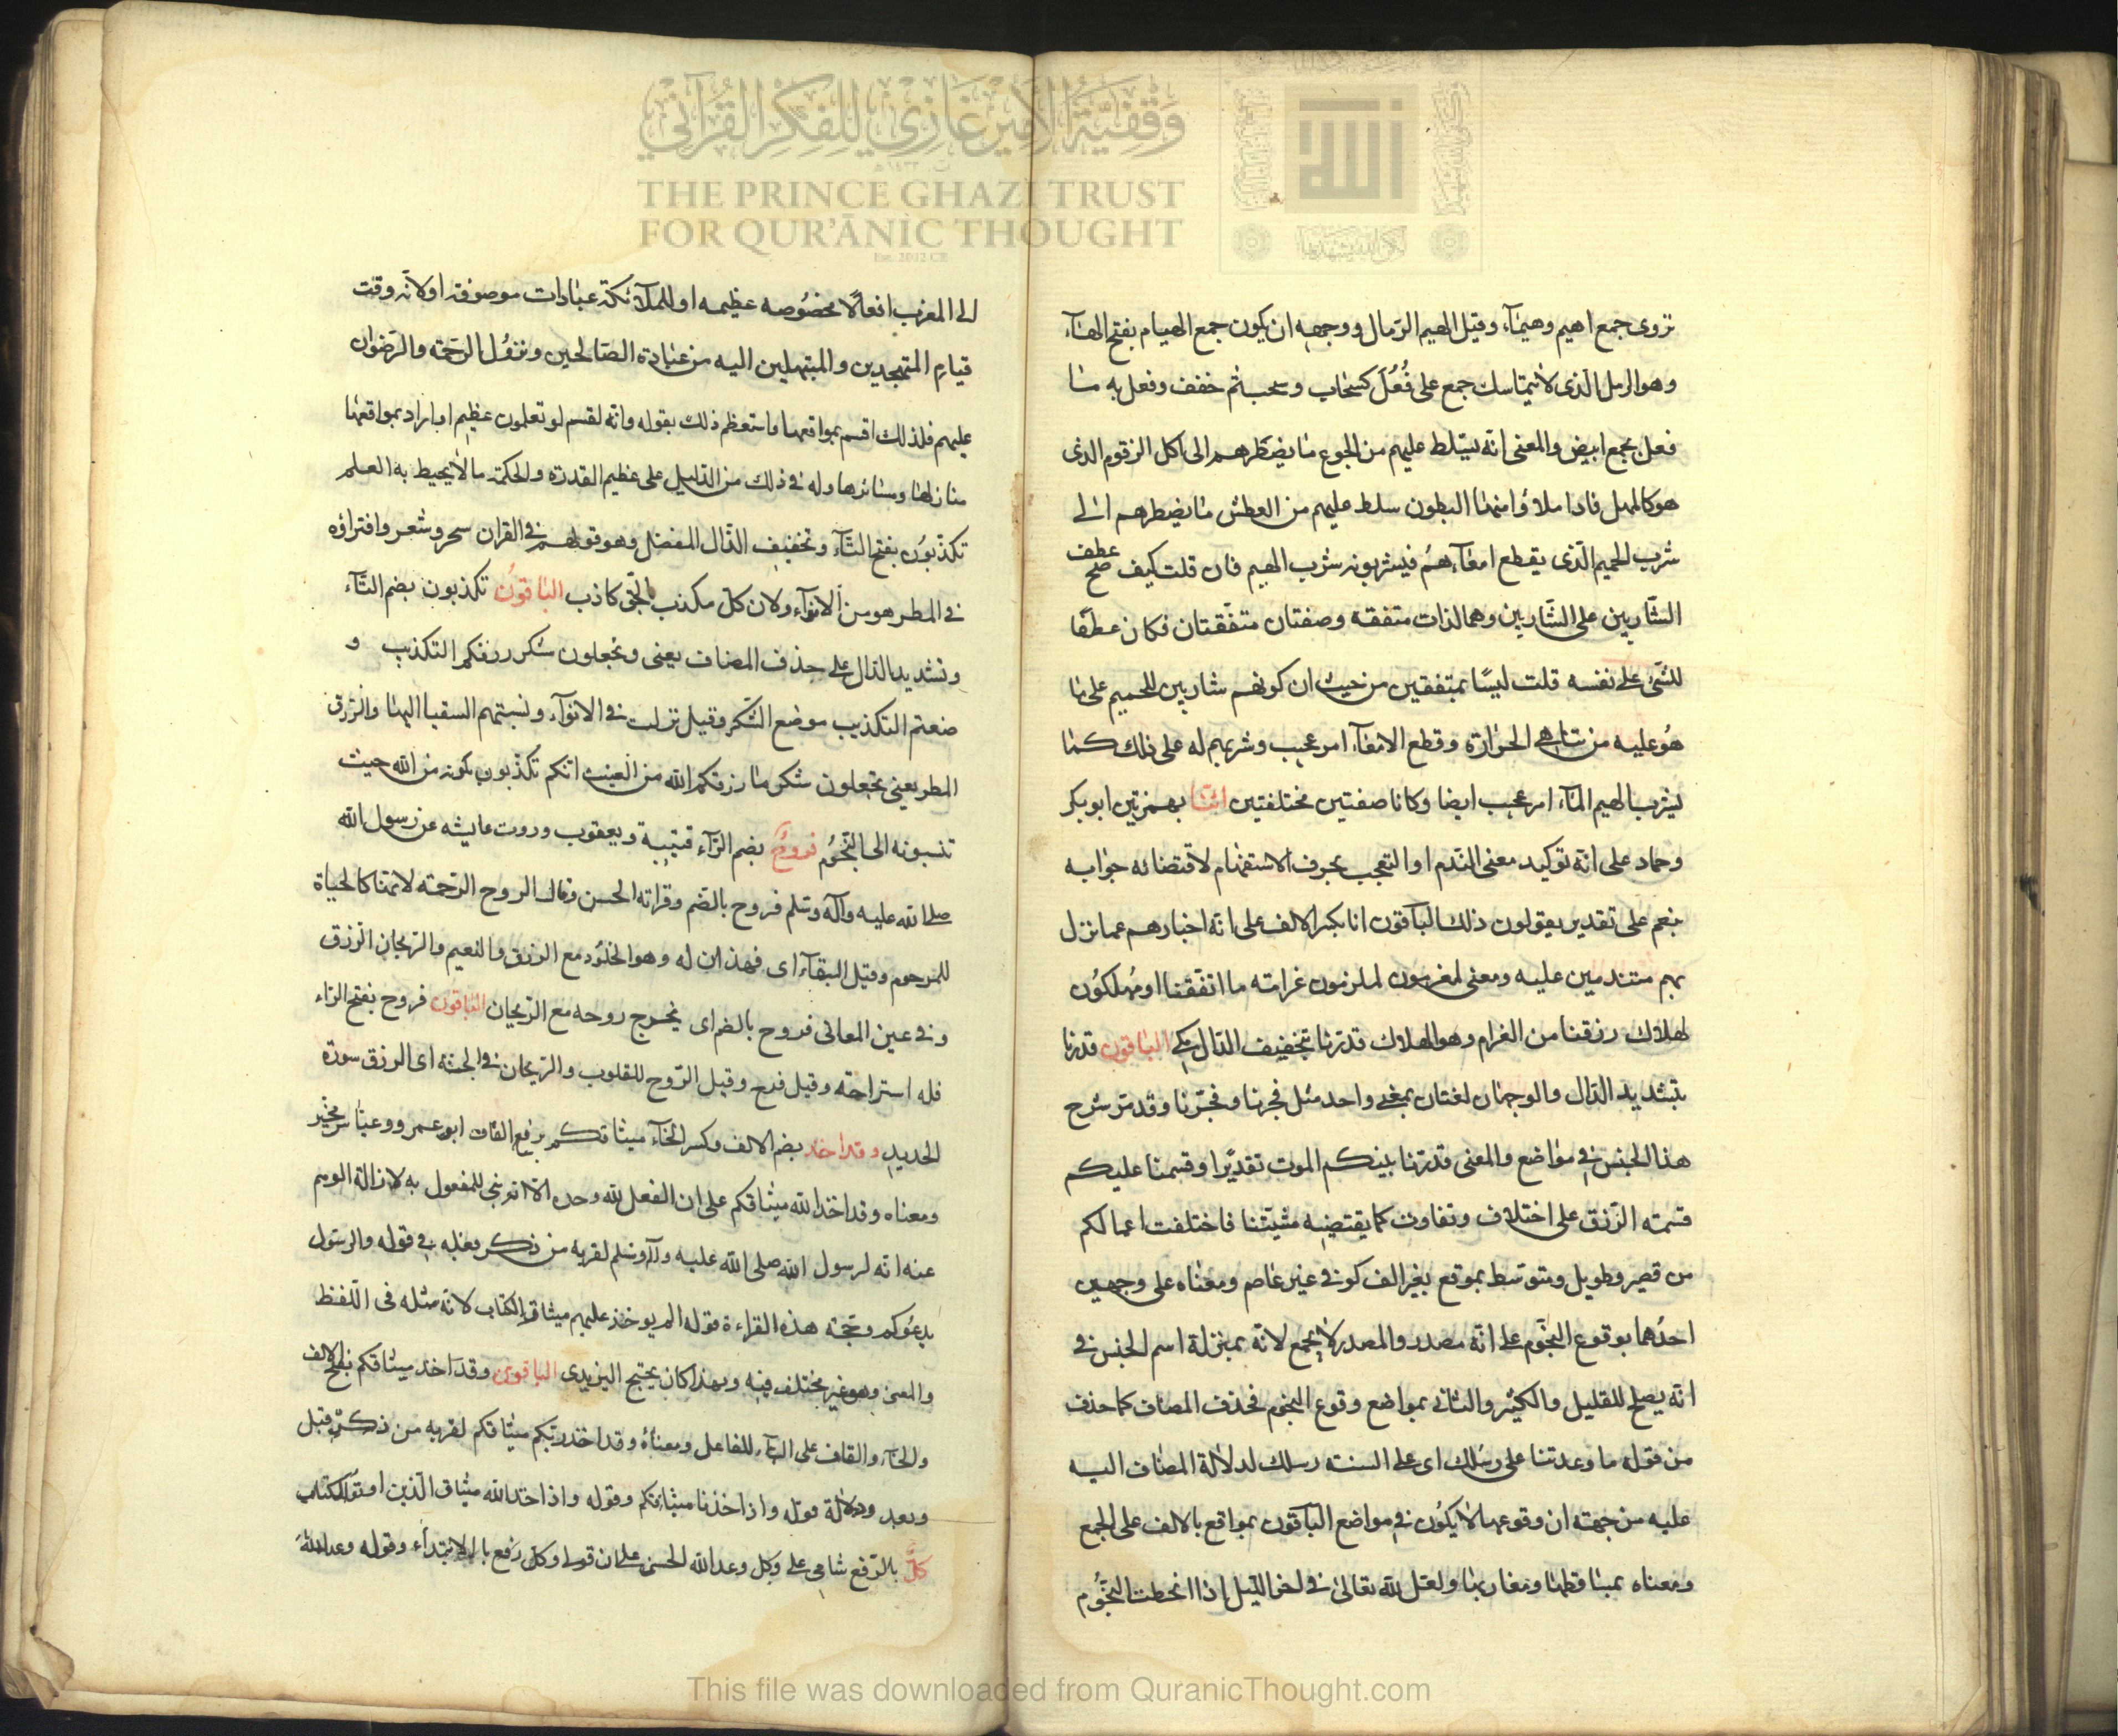 وقفية الأمير غازي للفكر القرآني
THE PRINCE GHAZI TRUST
FOR QUR'ĀNIC THOUGHT
Est. 2012 CE
تروى جمع اهيم وهيمآء وقيل الهيم الرمال ووجهه ان يكون جمع الهيام بفتح الهآء
وهو الرمل الذى لا يتماسك جمع على فُعُل كسحاب وسحب ثم خفف وفعل به ما
فعل بجمع ابيض والمعنى انه يتسلط عليهم من الجوع ما يضطرهم الى اكل الزقوم الذى
هو كالمهل فاذا ملاؤا منها البطون سلط عليهم من العطش ما يضطرهم الى
شرب الحميم الذى يقطع امعآءهم فيشربونه شرب الهيم فان قلت كيف صح عطف
الشاربين على الشاربين وهما لذات متفقة وصفتان متفقتان فكان عطفا
للشئ على نفسه قلت ليسا بمتفقين من حيث ان كونهم شاربين للحميم على ما
هو عليه من تناهى الحرارة وقطع الامعآء امر عجيب وشربهم له على ذلك كما
يشرب الهيم المآء امر عجيب ايضا وكانا صفتين مختلفتين ائنا بهمزتين ابو بكر
وحماد على انه توكيد معنى الندم او التعجب بحرف الاستفهام لاقتضائه جوابه
بنعم على تقدير يقولون ذلك الباقون انا بكسر الالف على انه اخبارهم عما نزل
بهم متندمين عليه ومعنى لمغرمون لملزمون غرامته ما انفقنا او مهلكون
لهلاك رزقنا من الغرام وهو الهلاك قدرنا بتخفيف الدال مكى الباقون قدرنا
بتشديد الدال والوجهان لغتان بمعنى واحد مثل فجرنا وفجّرنا وقد مر شرح
هذا الجنس فى مواضع والمعنى قدرنا بينكم الموت تقديرا وقسمنا عليكم
قسمته الرزق على اختلاف وتفاوت كما يقتضيه مشيتنا فاختلفت اعمالكم
من قصير وطويل ومتوسط بموقع بغير الف كوفى غير عاصم ومعناه على وجهين
احدهما بوقوع النجوم على انه مصدر والمصدر لا يجمع لانه بمنزلة اسم الجنس فى
انه يصلح للقليل والكثير والثانى بمواضع وقوع النجوم فحذف المضاف كما حذف
من قوله ما وعدتنا على رسلك اى على السنته رسلك لدلالة المضاف اليه
عليه من جهته ان وقوعها لا يكون فى مواضع الباقون بمواقع بالالف على الجمع
ومعناه بمساقطها ومغاربها ولعل لله تعالى فى اخر الليل اذا انحطت النجوم
الى المغرب افعالا مخصوصه عظيمه او للملآئكة عبادات موصوفه او لانه وقت
قيام المتهجدين والمبتهلين اليه من عباده الصالحين ونزول الرحمة والرضوان
عليهم فلذلك اقسم بمواقعها واستعظم ذلك بقوله وانه لقسم لو تعلمون عظيم او اراد بمواقعها
منازلها ومسائرها وله فى ذلك من الدليل على عظيم القدرة والحكمة ما لا يحيط به العلم
تكذبون بفتح التآء وتخفيف الذال المفضل وهو قولهم فى القران سحر وشعر وافتراؤه
فى المطر هو من الانوآء ولان كل مكذب بالحق كاذب الباقون تكذبون بضم التآء
وتشديد الذال على حذف المضاف يعنى وتجعلون شكر رزقكم التكذيب و
ضعتم التكذيب موضع الشكر وقيل نزلت فى الانوآء ونسبتهم السقيا اليها والرزق
المطر يعنى تجعلون شكر ما رزقكم الله من الغيث انكم تكذبون بكونه من الله حيث
تنسبونه الى النجوم فروحٌ بضم الرآء قتيبة ويعقوب وروت عايشه عن رسول الله
صلى الله عليه وآله وسلم فروح بالضم وقراته الحسن وقال الروح الرحمة لانها كالحياة
للمرحوم وقيل البقآء اى فهذان له وهو الخلود مع الرزق والنعيم والريحان الرزق
وفى عين المعانى فروح بالضم اى يخرج روحه مع الريحان الباقون فروح بفتح الراء
فله استراحة وقيل فرح وقيل الروح للقلوب والريحان فى الجنة اى الرزق سورة
الحديد وقد اخذ بضم الالف وكسر الخآء ميثاقكم برفع القاف ابو عمرو وعباس مخير
ومعناه وقد اخذ الله ميثاقكم على ان الفعل لله وحده الا انه بنى للمفعول به لازالة الوهم
عنه انه لرسول الله صلى الله عليه وآله وسلم لقربه من ذكر فعله فى قوله والرسول
يدعوكم وحجته هذه القراءة قوله الم يوخذ عليهم ميثاق الكتاب لانه مثله فى اللفظ
والمعنى وهو غير مختلف فيه وبهذا كان يحتج اليزيدى الباقون وقد اخذ ميثاقكم بفتح الالف
والخآء والقاف على البآء للفاعل ومعناه وقد اخذ ربكم ميثاقكم لقربه من ذكره قبل
وبعد ودلالة قوله واذ اخذنا ميثاقكم وقوله واذ اخذ الله ميثاق الذين اوتوا الكتاب
كلٌّ بالرفع شامى على وكل وعد الله الحسنى على ان قوله وكل رفع بالابتداء وقوله وعد الله
This file was downloaded from QuranicThought.com